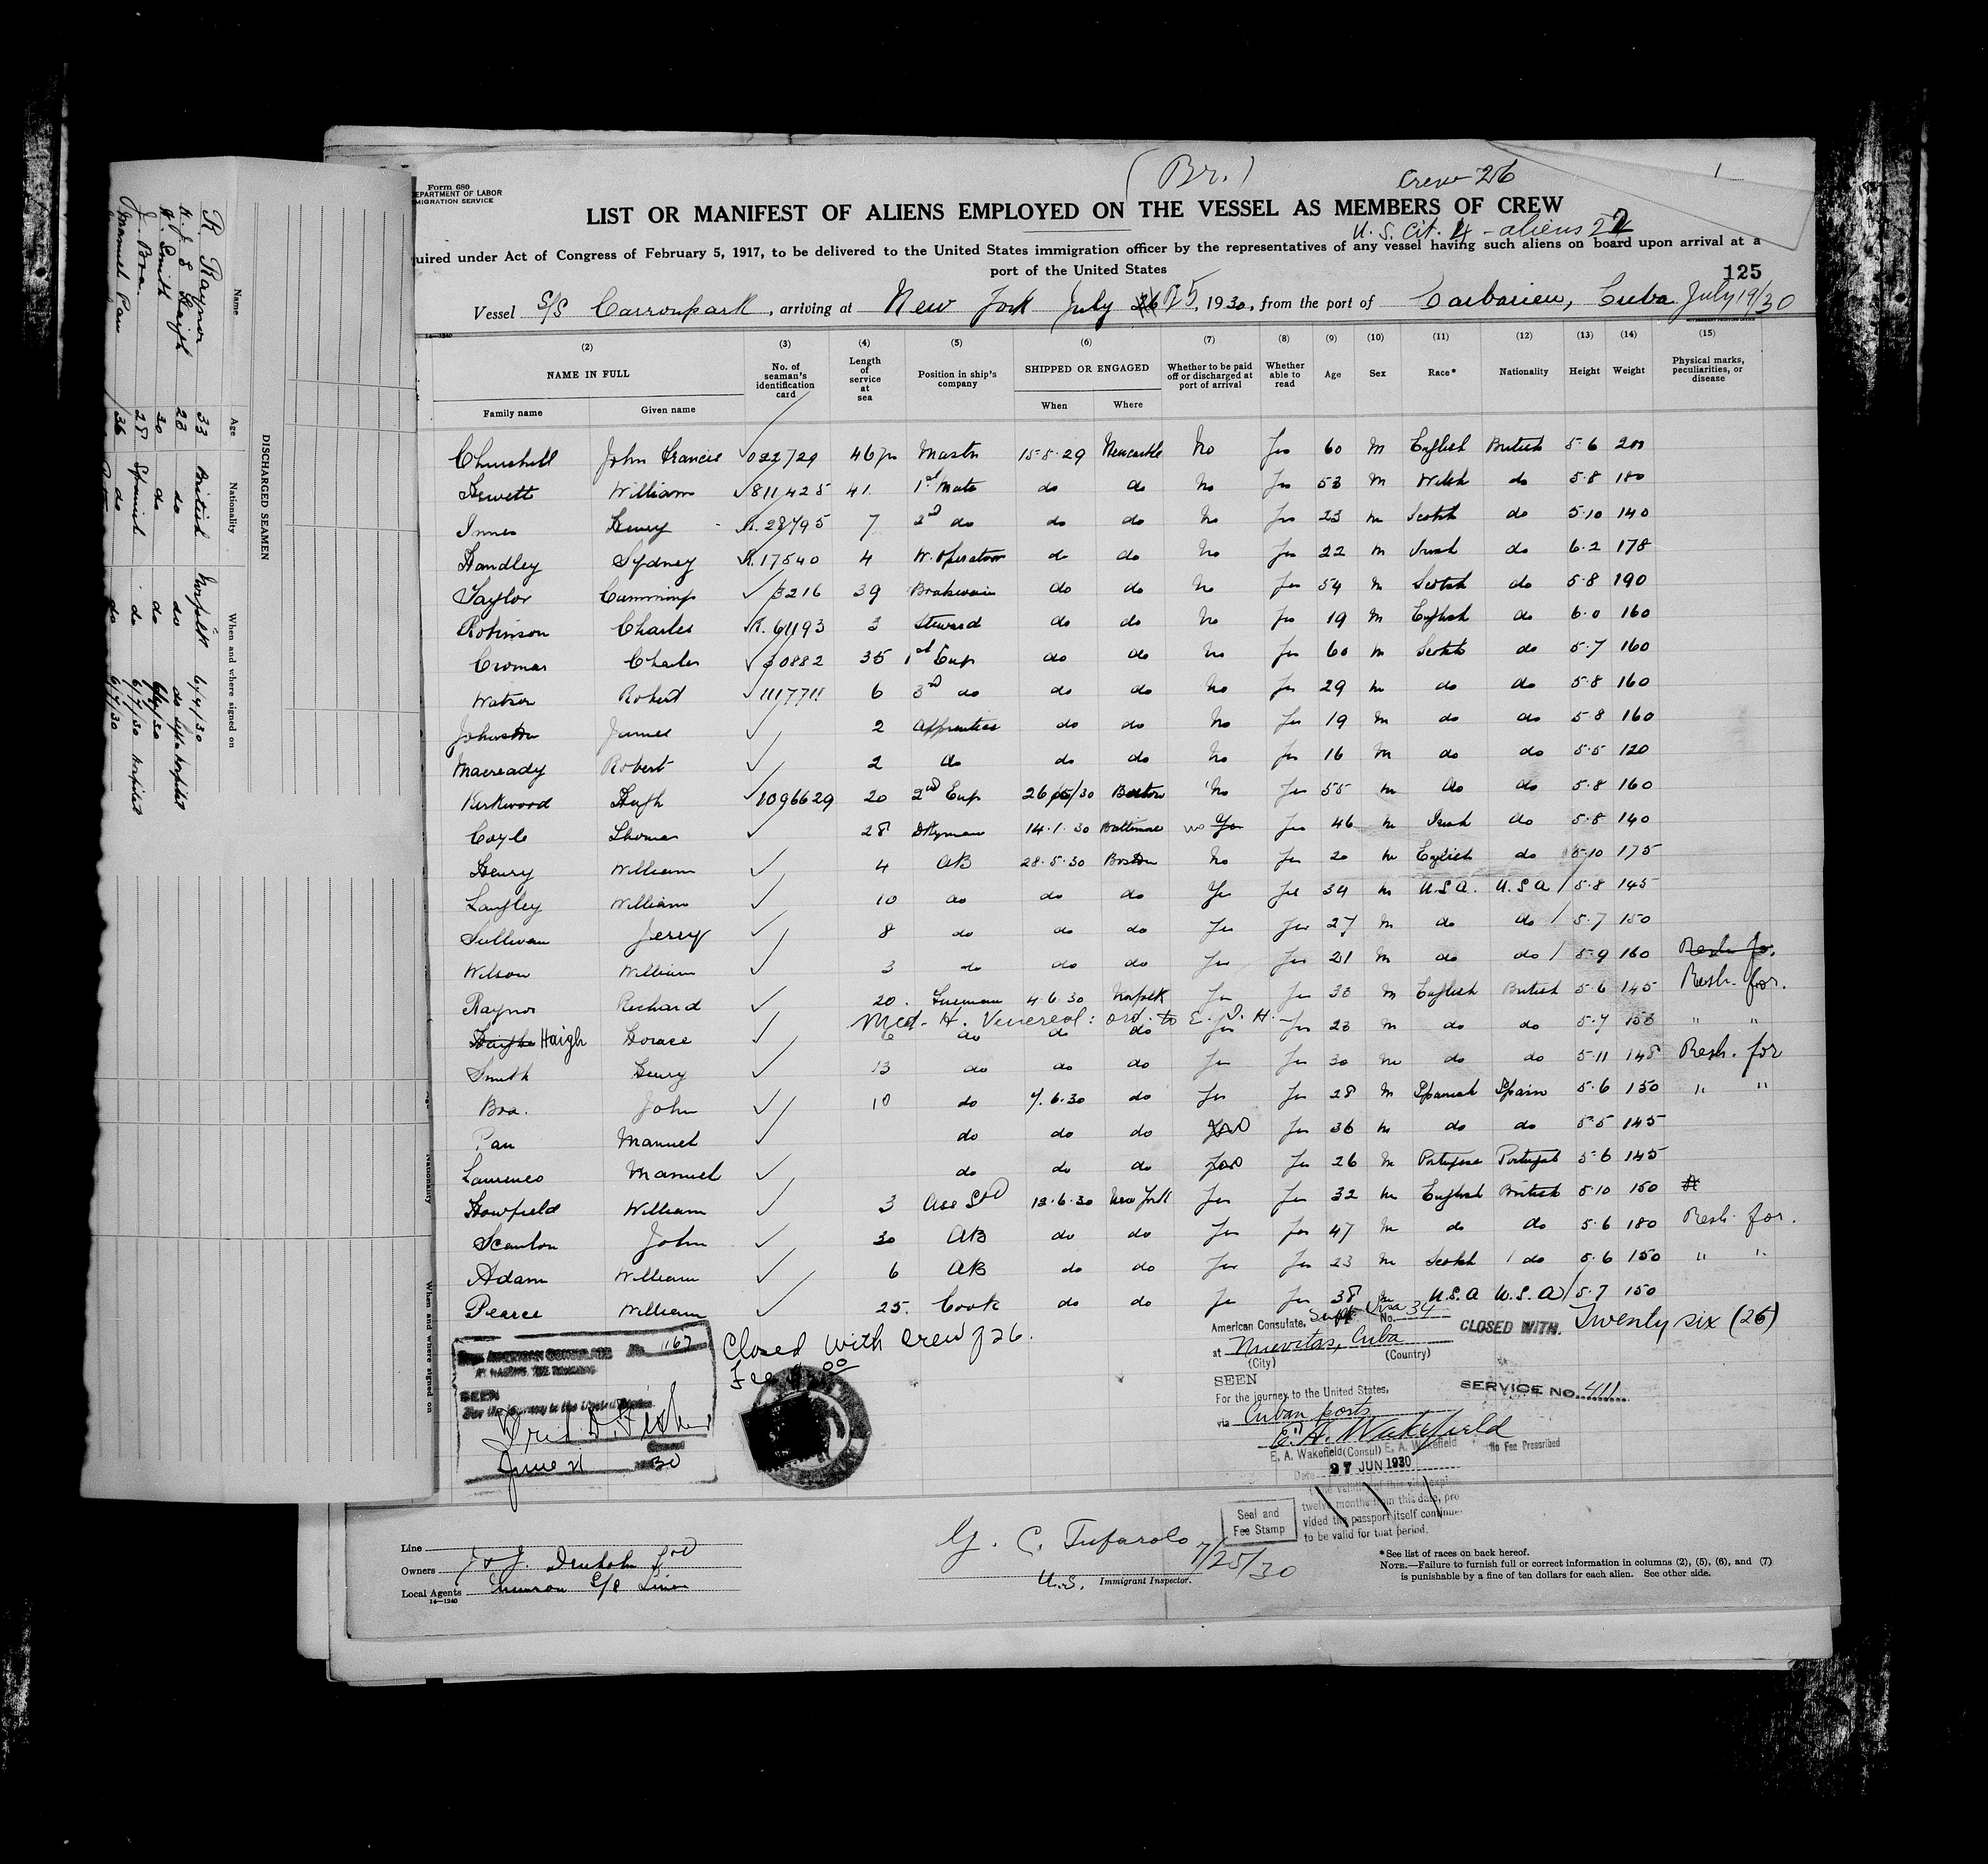 Form 680
DEPARTMENT OF LABOR
IMMIGRATION SERVICE
(Br.)
Crew 26
1
LIST OR MANIFEST OF ALIENS EMPLOYED ON THE VESSEL AS MEMBERS OF CREW
U.S. Cit. 4 - aliens 22
uired under Act of Congress of February 5, 1917, to be delivered to the United States immigration officer by the representatives of any vessel having such aliens on board upon arrival at a
port of the United States
125
Vessel S/S Carronpark, arriving at New York July 25, 1930, from the port of Caibarien, Cuba July 19/30
14-1240
(2) (3) (4) (5) (6) (7) (8) (9) (10) (11) (12) (13) (14) (15)
NAME IN FULL No. of seaman's identification card Length of service at sea Position in ship's company SHIPPED OR ENGAGED Whether to be paid off or discharged at port of arrival Whether able to read Age Sex Race* Nationality Height Weight Physical marks, peculiarities, or disease
Family name Given name When Where
Churchill John Francis 022729 46 yrs Master 15·5·29 Newcastle No Yes 60 M English British 5·6 200
Hewett William 811425 41 1st Mate do do No Yes 53 M Welsh do 5·8 180
Innes Henry R.28795 7 2nd do do do No Yes 23 M Scotch do 5·10 140
Handley Sydney R.17540 4 W. Operator do do No Yes 22 M Irish do 6·2 178
Taylor Cummings 3216 39 do do No Yes 54 M Scotch do 5·8 190
Robinson Charles R.61193 3 Steward do do No Yes 19 M English do 6·0 160
Cromar Charles 30882 35 1st Eng do do No Yes 60 M Scotch do 5·7 160
Watson Robert 1117711 6 3rd do do do No Yes 29 M do do 5·8 160
Johnston James 2 Apprentice do do No Yes 19 M do do 5·8 160
Macready Robert 2 do do do No Yes 16 M do do 5·5 120
Kirkwood Hugh 1096629 20 2nd Eng 26/5/30 Boston No Yes 55 M do do 5·8 160
Coyle Thomas 28 Dkyman 14·1·30 Baltimore no Yes Yes 46 M Irish do 5·8 140
Henry William 4 AB 28·5·30 Boston No Yes 20 M English do 5·10 175
Langley William 10 do do do Yes Yes 34 M U.S.A. U.S.A / 5·8 145
Sullivan Jerry 8 do do do Yes Yes 27 M do do / 5·7 150
Wilson William 3 do do do Yes Yes 21 M do do / 5·9 160 Resh. for.
Raynor Richard 20 Fireman 4·6·30 Norfolk Yes Yes 33 M English British 5·6 145 Resh. for.
Med. H. Venereal: ord. to E. I. H.
Haigh Horace 6 do do do Yes Yes 23 M do do 5·7 153 " "
Smith Henry 13 do do do Yes Yes 30 M do do 5·11 148 Resh. for
Boa. John 10 do 7.6.30 do Yes Yes 28 M Spanish Spain 5·6 150 " "
Pau Manuel do do do Yes 36 M do do 5·5 145
Laurenco Manuel do do do Yes 26 M Portugese Portugal 5·6 145
Howfield William 3 Ass Std 13·6·30 New York Yes Yes 32 M English British 5·10 150
Scanlon John 30 AB do do Yes Yes 47 M do do 5·6 180 Resh. for.
Adam William 6 AB do do Yes Yes 23 M Scotch / do 5·6 150 " "
Pearce William 25. Cook do do Yes Yes 38 M U.S.A U.S.A / 5·7 150
AMERICAN CONSULATE No. 167
SEEN
For the journey to the United States
June 21 1930
Closed with crew of 26.
Fee
American Consulate, Supp Visa No. 34
at Nuevitas, Cuba
(City) (Country)
SEEN
For the journey to the United States,
via Cuban ports
E. A. Wakefield
E. A. Wakefield (Consul) E. A. Wakefield
Date 27 JUN 1930
twelve months from this date, pro
vided the passport itself continues
to be valid for that period.
Seal and
Fee Stamp
CLOSED WITH. Twenty six (26)
SERVICE NO. 411
No Fee Prescribed
Line
Owners J & J. Denholm Ltd
Local Agents Munson S/S Line
14-1240
G. C. Tufarolo 7/25/30
U.S. Immigrant Inspector.
*See list of races on back hereof.
NOTE.—Failure to furnish full or correct information in columns (2), (5), (6), and (7)
is punishable by a fine of ten dollars for each alien. See other side.
DISCHARGED SEAMEN
Name Age Nationality When and where signed on
R Raynor 33 British Norfolk 6/4/30
H. J. E Haigh 23 do do Left Hospital
H. Smith 30 do do 6/4/30
J. Boa. 28 Spanish do 6/7/30 Hospital
Manuel Pau 36 do do 6/7/30
Nationality
When and where signed on